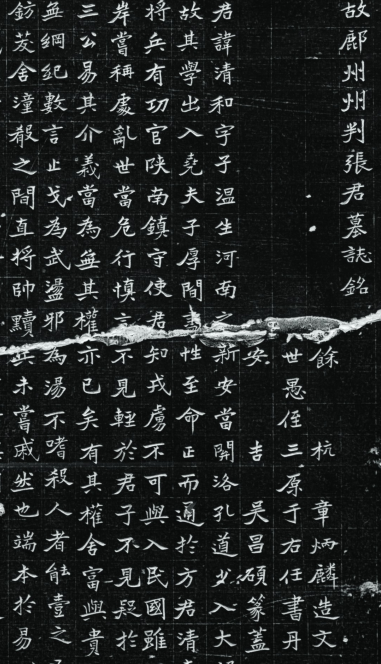 故鄜州州判張君墓誌銘
餘杭章炳麟造文
世愚侄三原于右任書丹
安吉吳昌碩篆蓋
君諱清和字子温生河南之新安當關洛孔道少入大
故其學出入堯夫子厚間盡性至命正而通於方君清
將兵有功官陝南鎮守使君知戎虜不可與入民國雖
岸嘗稱處亂世當危行慎言不見輕於君子不見疑於
三公易其介義當為無其權亦已矣有其權舍富與貴
無綱紀數言止戈為武盪邪為湯不嗜殺人者能壹之
鈁茇舍潼殽之間直將帥黷其未嘗戚然也端本於易